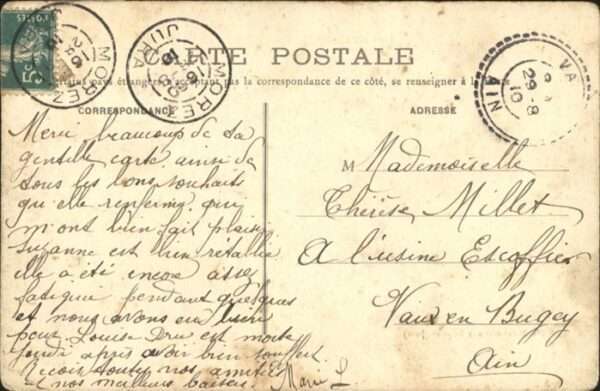 CARTE POSTALE
pays étrangers acceptant pas la correspondance de ce côté, se renseigner à la
CORRESPONDANCE
ADRESSE
MOREZ
JURA
MOREZ
JURA
AIN
29-8
10
5c
Merci beaucoup de ta
gentille carte ainsi de
tous les bons souhaits
qu'elle renferme qui
m'ont bien fait plaisir
Suzanne est bien rétablie
elle a été encore assez
fatiguée pendant quelques
et nous avons eu bien
peur. Louise est morte
jeudi après avoir bien souffert
Reçois toutes nos amitiés
et nos meilleurs baisers. Marie L
M Mademoiselle
Thérèse Millet
A l'usine Escoffier
Vaux en Bugey
Ain